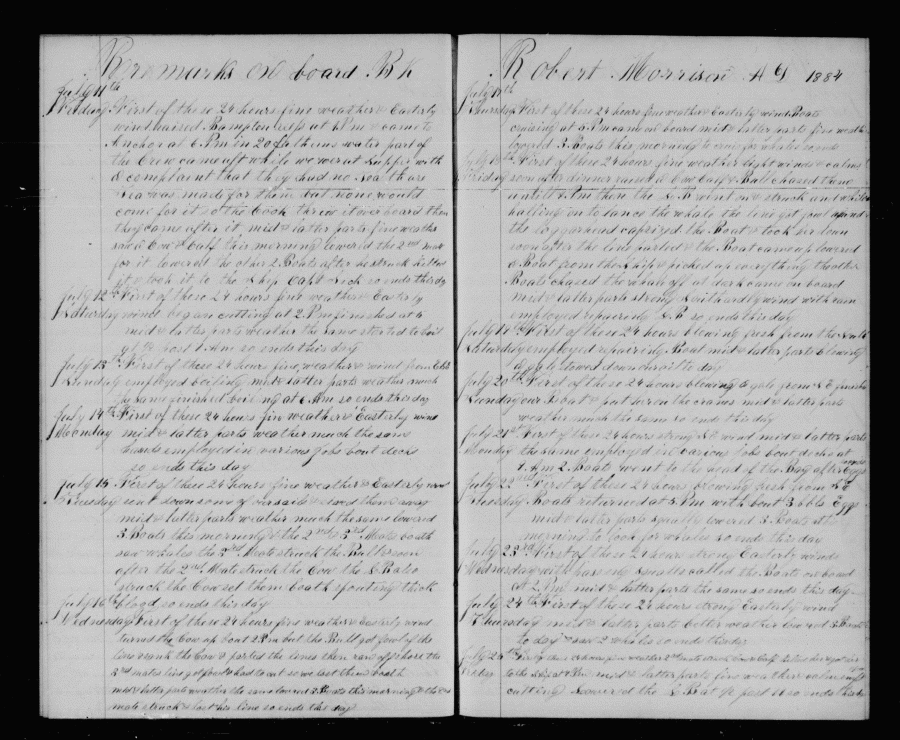 Remarks on board Bk
July 11th First of these 24 hours fine weather & Easterly
wind raised Bampton reefs at 4 Pm & came to
Anchor at 6 Pm in 20 fathoms water part of
the Crew came aft while we wer at Supper with
a complaint that they had no
was made for them but none would
come for it so the Cook threw it overboard then
they came after it mid & latter parts fine weather
saw a Cow & Calf this morning lowerd the 2nd mate
for it lowerd the other 2 Boats after he struck killed
it & took it to the Ship so ends this day
July 12th First of these 24 hours fine weather & Easterly
Saturday winds began cutting at 2 Pm finished at 4
mid & latter parts weather the same started to boil
at past 1 Am so ends this day
July 13th First of these 24 hours fine weather & wind from
Sunday employed boiling mid & latter parts weather much
the same finished boiling at 6 Am so ends this day
July 14th First of these 24 hours fine weather & Easterly wind
Monday mid & latter parts weather much the same
hands employed in various jobs bout deck
so ends this day
July 15 First of these 24 hours fine weather & Easterly wind
Tuesday sent down some of our sails &
mid & latter parts weather much the same lowered
3 Boats this morning & the 2nd & 3rd Mates boath
saw whales the 3rd Mate struck the Bull & soon
after the 2nd Mate struck the Cow the
struck the Cow set them boath spouting thick
blood so ends this day
July 16th
Wednesday First of these 24 hours fine weather & Easterly wind
turned the Cow up bout 2 Pm but the Bull got foul of the
lines sunk the Cow & parted the lines then ran off shore the
3rd mates line got foul & had to cut so we lost them boath
mid & latter parts weather the same lowered 3 Boats this morning & the 2nd
mate struck & lost his line so ends the day
Robert Morrison 1884
July 17th
Thursday First of these 24 hours fine weather & Easterly wind Boats
cruising at 5 Pm came on board mid & latter parts fine weather
lowerd 3 Boats this morning to cruise for whales so ends
July 18th First of these 24 hours fine weather light winds & calms
Friday soon after dinner raised a Cow Calf & Bull chased them
until 4 Pm then the went on & struck and while
halling on to lance the whale the line got foul
the loggarhead capsized the Boat & took her down
soon after the line parted & the Boat came up lowered
a Boat from the Ship & picked up everything the other
Boats chased the whale off at dark came on board
mid & latter parts strong Southardly wind with rain
employed repareing so ends this day
July 19th First of these 24 hours blowing fresh from the
Saturday employed repairing Boat mid & latter parts blowing
a gale
July 20th First of these 24 hours blowing a gale from
Sunday our Boat & put her on the cranes mid & latter parts
weather much the same so ends this day
July 21st First of these 24 hours strong wind mid & latter parts
Monday the same employed in various jobs bout decks at
7 Am 2 Boats went to the head of the Bay after Eggs
July 22nd First of these 24 hours blowing fresh from
Tuesday Boats returned at 5 Pm with bout 3 bbls Eggs
mid & latter parts squally lowered 3 Boats
morning to look for whales so ends this day
July 23rd First of these 24 hours strong Easterly winds
Wednesday with passing squalls called the Boats on board
at 2 Pm mid & latter parts the same so ends this day
July 24th First of these 24 hours strong Easterly wind
Thursday mid & latter parts better weather lowerd 3 Boats
to day saw 2 whales so ends this day
July 25th First of these 24 hours fine weather 2nd mate struck Cow & Calf
Friday to the Ship at Pm mid & latter parts fine weather
cutting lowered the Boat past 11 so ends this